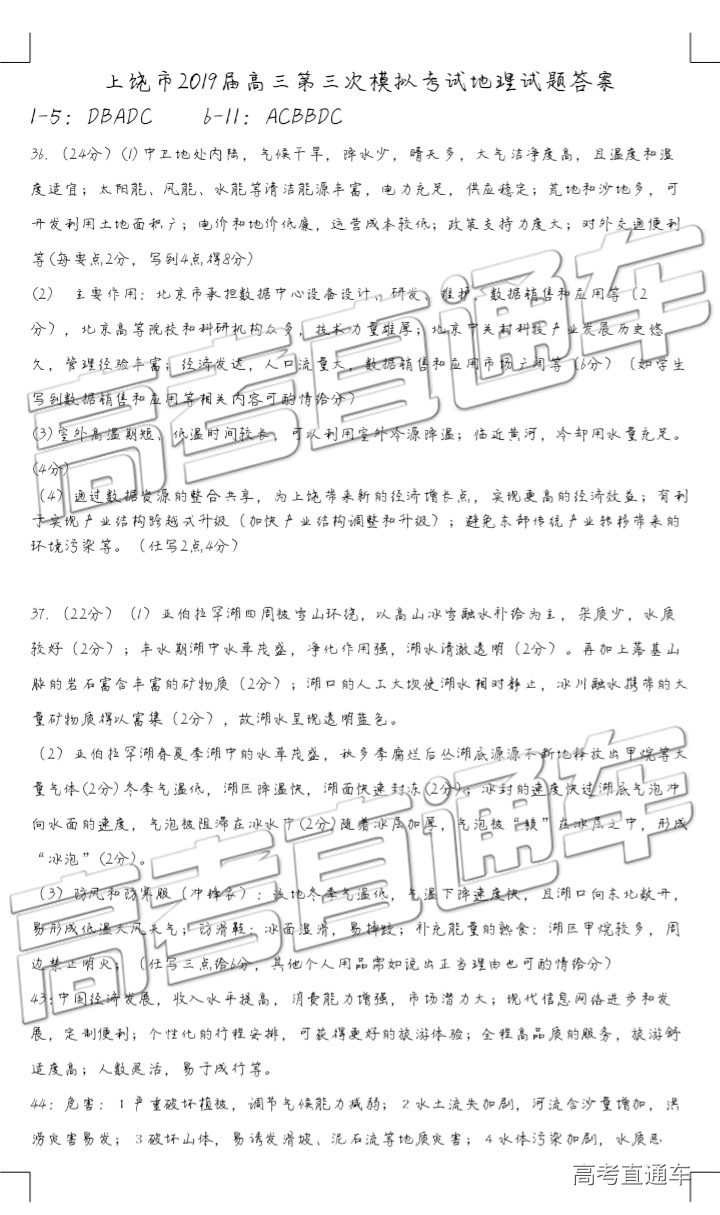 上饶市2019届高三第三次模拟考试地理试题答案
1-5：DBADC 6-11：ACBBDC
36.（24分）(1)中卫地处内陆，气候干旱，降水少，晴天多，大气洁净度高，且温度和湿
度适宜；太阳能、风能、水能等清洁能源丰富，电力充足，供应稳定；荒地和沙地多，可
开发利用土地面积广；电价和地价低廉，运营成本较低；政策支持力度大；对外交通便利
等(每要点2分，写到4点得8分)
(2) 主要作用：北京市承担数据中心设备设计、研发、维护，数据销售和应用等（2
分），北京高等院校和科研机构众多，技术力量雄厚；北京中关村科技产业发展历史悠
久，管理经验丰富；经济发达，人口流量大，数据销售和应用市场广阔等（6分）（如学生
写到数据销售和应用等相关内容可酌情给分）
(3)室外高温期短、低温时间较长，可以利用室外冷源降温；临近黄河，冷却用水量充足。
(4分)
（4）通过数据资源的整合共享，为上饶带来新的经济增长点，实现更高的经济效益；有利
于实现产业结构跨越式升级（加快产业结构调整和升级）；避免东部传统产业转移带来的
环境污染等。（任写2点4分）
37.（22分）（1）亚伯拉罕湖四周被雪山环绕，以高山冰雪融水补给为主，杂质少，水质
较好（2分）；丰水期湖中水草茂盛，净化作用强，湖水清澈透明（2分）。再加上落基山
脉的岩石富含丰富的矿物质（2分）；湖口的人工大坝使湖水相对静止，冰川融水携带的大
量矿物质得以富集（2分），故湖水呈现透明蓝色。
（2）亚伯拉罕湖春夏季湖中的水草茂盛，秋冬季腐烂后从湖底源源不断地释放出甲烷等大
量气体(2分)冬季气温低，湖区降温快，湖面快速封冻(2分)；冰封的速度快过湖底气泡冲
向水面的速度，气泡被阻滞在冰水中(2分)随着冰层加厚，气泡被“锁”在冰层之中，形成
“冰泡”(2分)。
（3）防风和防寒服（冲锋衣）：该地冬季气温低，气温下降速度快，且湖口向东北敞开，
易形成低温大风天气；防滑鞋：冰面湿滑，易摔跤；补充能量的熟食：湖区甲烷较多，周
边禁止明火；（任写三点给6分，其他个人用品需如说出正当理由也可酌情给分）
43:中国经济发展，收入水平提高，消费能力增强，市场潜力大；现代信息网络进步和发
展，定制便利；个性化的行程安排，可获得更好的旅游体验；全程高品质的服务，旅游舒
适度高；人数灵活，易于成行等。
44：危害：1严重破坏植被，调节气候能力减弱；2水土流失加剧，河流含沙量增加，洪
涝灾害易发；3破坏山体，易诱发滑坡、泥石流等地质灾害；4水体污染加剧，水质恶
高考直通车
高考直通车
高考直通车